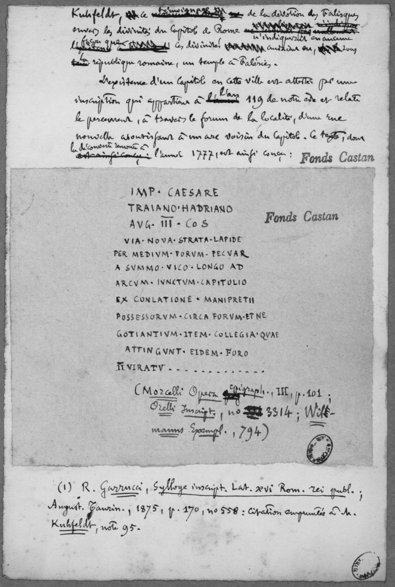 Kuhfeldt, ce témoignage de la dévotion des Falisques
envers les divinités du Capitole de Rome
n'indiquerait en aucune
façon que ces divinités auraient eu,
république romaine, un temple à Faléries.
L'existence d'un Capitole en cette ville est attestée par une
inscription qui appartient à l'an 119 de notre ère et relate
le percement, à travers le forum de la localité, d'une rue
nouvelle aboutissant à un arc voisin du Capitole. Ce texte, dont
la découverte remonte à
l'année 1777, est ainsi conçu :
Fonds Castan
IMP · CAESARE
TRAIANO · HADRIANO
AVG · III · COS
Fonds Castan
VIA · NOVA · STRATA · LAPIDE
PER MEDIVM · FORVM · PECVAR
A SVMMO · VICO · LONGO AD
ARCVM · IVNCTVM · CAPITOLIO
EX CONLATIONE · MANIPRETII
POSSESSORVM · CIRCA FORVM · ET NE
GOTIANTIVM · ITEM · COLLEGIA · QVAE
ATTINGVNT · EIDEM · FORO
II VIRATV . . . . . . . . . . . .
(Morcelli Opera epigraph., III, p. 101 ;
Orelli Inscript., no 3314 ; Wil-
manns Exempl., 794)
(1) R. Garrucci, Sylloge inscript. Lat. aevi Rom. rei publ. ;
August. Taurin., 1875, p. 170, no 558 : citation empruntée à M.
Kuhfeldt, note 95.